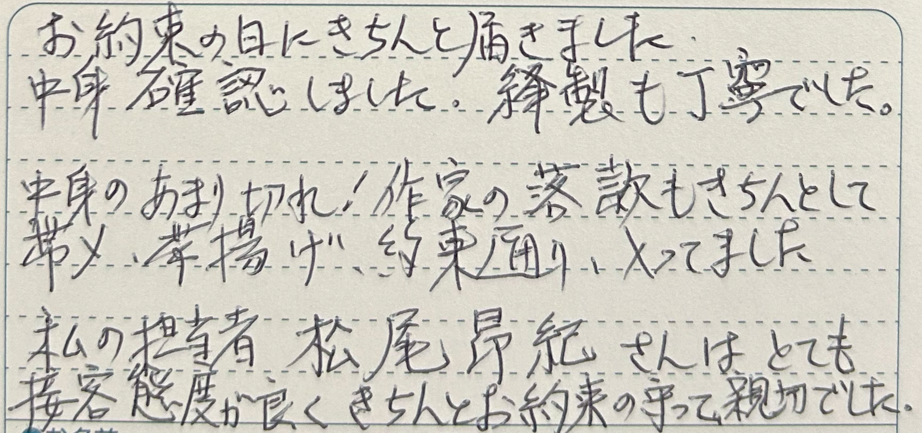 お約束の日にきちんと届きました.
中身確認しました。縫製も丁寧でした。
中身のあまり切れ!作家の落款もきちんとして
帯〆、帯揚げ、約束通り、入ってました
私の担当者 松尾昂紀 さんは とても
接客態度が良くきちんとお約束の守って、親切でした。